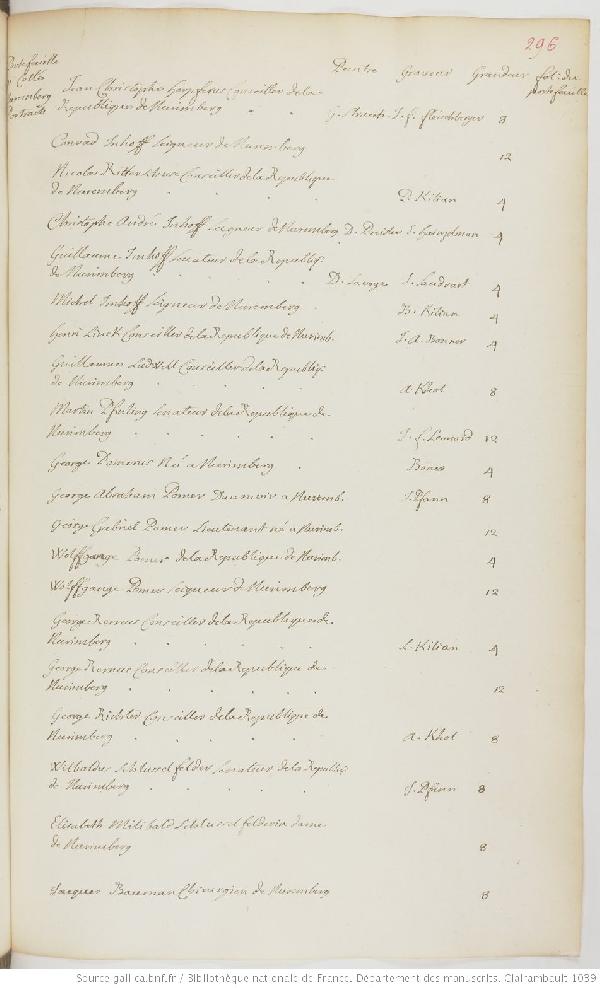 296
Peintre Graveur Grandeur fol. du
portefeuille
Portefeuille
Jean Christophe Conseiller de la
Republique de Nuremberg G. Strauch 8
Conrad Imhoff Seigneur de Nuremberg 12
Nicolas Ritter Conseiller de la Republique
de Nuremberg D. Kilian 4
Christophe André Imhoff Seigneur de Nuremberg D. 4
Guillaume Imhoff Senateur de la Republiq.
de Nuremberg D. Savoye J. Sandrart 4
Michel Imhoff Seigneur de Nuremberg B. Kilian 4
Henri Linck Conseiller de la Republique de Nuremb. J. A. Bonner 4
Guillaume Ludwell Conseiller de la Republiq.
de Nuremberg A. Khol 8
Martin Senateur de la Republique de
Nuremberg 12
George Né a Nuremberg Boner 4
George Abraham Pomer Duumvir a Nuremb. J. Pfann 8
George Gabriel Pomer Lieutenant né a Nuremb. 12
Wolffgange Pomer de la Republique de Nuremb. 4
Wolffgange Pomer Seigneur de Nuremberg 12
George Remus Conseiller de la Republique de
Nuremberg L. Kilian 4
George Remus Conseiller de la Republique de
Nuremberg 12
George Richter Conseiller de la Republique de
Nuremberg A. Khol 8
Wilbaldus Schlussel felder Senateur de la Republiq.
de Nuremberg J. Pfann 8
Elisabeth Schlussel felderin dame
de Nuremberg 8
Jacques Bauman Chirurgien de Nuremberg 8
Source gallica.bnf.fr / Bibliothèque nationale de France. Département des manuscrits. Clairambault 1039